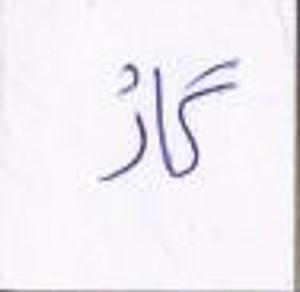 گاڑ